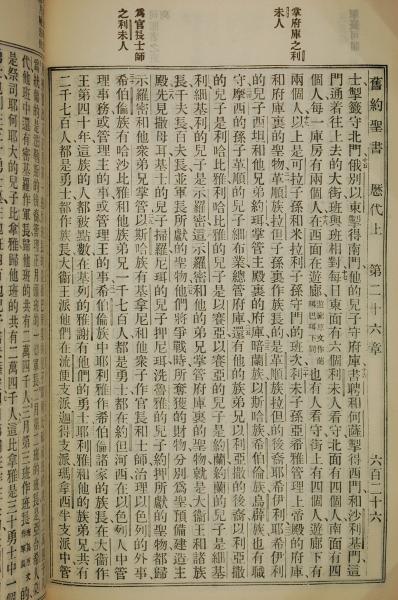 舊約聖書 歷代上 第二十六章 六百二十六
掌府庫之利未人
爲官長士師之利未人
士掣籤守北門俄別以東掣得南門他的兒子守府庫書聘與何薩掣得西門和沙利基門這
門通着往上去的大街班與班相對每日東面有六個利未人看守北面有四個人南面有四
個人每一庫房有兩個人在西面在遊廊遊廊原文作巴下同也有人看守街上有四個人遊廊下有
兩個人以上是可拉子孫和米拉利子孫守門的班次利未子孫亞希雅管理上帝殿的府庫
和府庫裏的聖物革順族拉但子孫裏作族長的是革順族拉但的後裔耶希伊利耶希伊利
的兒子西坦和他兄弟約珥掌管主殿裏的府庫暗蘭族以斯哈族希伯倫族烏薛族也有職
守摩西的孫子革順的兒子細布業總管府庫還有他的族弟兄以利亞撒的後裔以利亞撒
的兒子是利哈比雅利哈比雅的兒子是以賽亞以賽亞的兒子是約蘭約蘭的兒子是細基
利細基利的兒子是示羅密這示羅密和他弟兄掌管府庫裏的聖物就是大衞王和諸族
長千夫長百夫長並軍長所獻的聖物他們將爭戰時所奪獲的財物分別爲聖預備建造主
殿先見撒母耳基士的兒子掃羅尼珥的兒子押尼珥洗魯雅的兒子約押所獻的聖物都歸
示羅密和他衆弟兄掌管以斯哈族有基拿尼和他衆子作官長和士師治理以色列的外事
希伯倫族有哈沙比雅和他族弟兄一千七百人都是勇士都在約但河西在以色列人中管
理事務或管理主的事或管理王的事希伯倫族中耶利雅作希伯倫諸家的族長在大衞作
王第四十年這族的人都被點數在基列的雅謝有他們的勇士耶利雅和他的族弟兄共有
二千七百人都是勇士都作族長大衞王派他們在流便支派迦得支派瑪拿西半支派中管
代他班中還有密基羅作軍長歸他班的共有二萬四千人三月第三班作班長
是祭司耶何耶大的兒子比拿雅歸他班的共有二萬四千人這比拿雅是三十勇士中一個